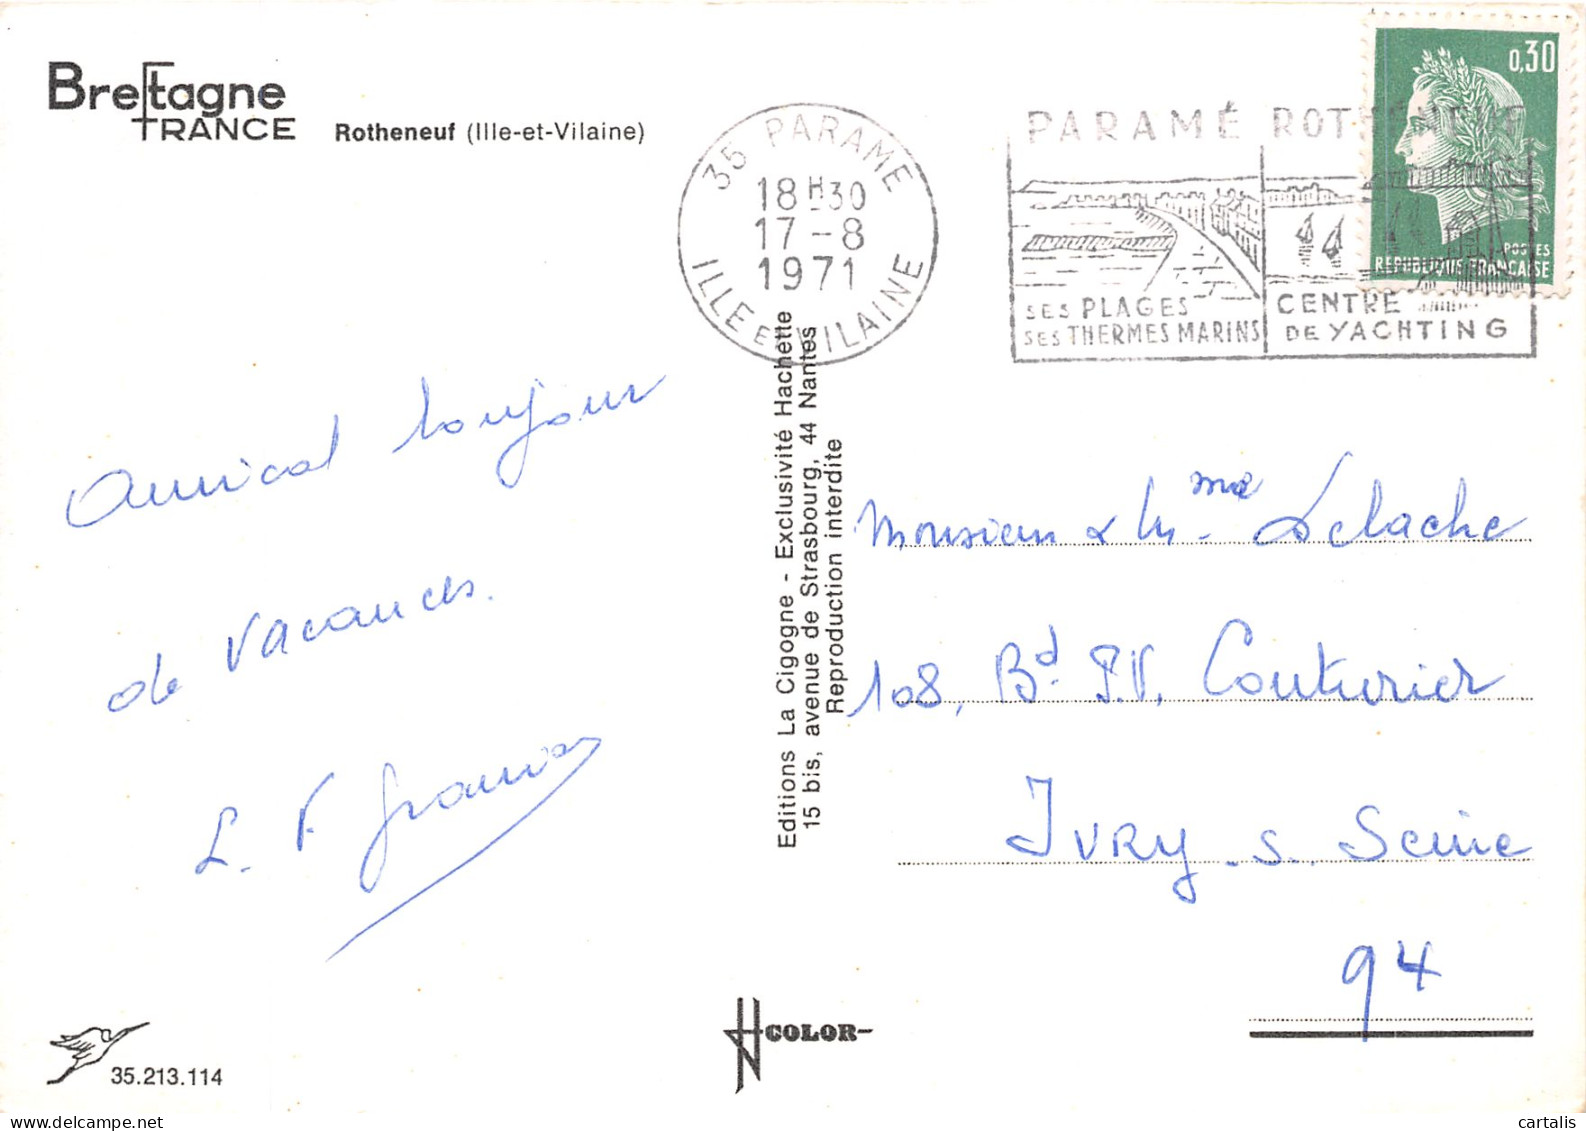 Bretagne
FRANCE
Rotheneuf (Ille-et-Vilaine)
35 PARAME
18 H 30
17-8
1971
ILLE ET VILAINE
PARAMÉ ROTHÉNEUF
SES PLAGES
SES THERMES MARINS
CENTRE
DE YACHTING
0,30
POSTES
REPUBLIQUE FRANÇAISE
Amical bonjour
de vacances.
Editions La Cigogne - Exclusivité Hachette
15 bis, avenue de Strasbourg, 44 Nantes
Reproduction interdite
Monsieur & Mme Delache
108, Bd. P.V. Couturier
IVRY-s. Seine
94
COLOR
35.213.114
cartalis